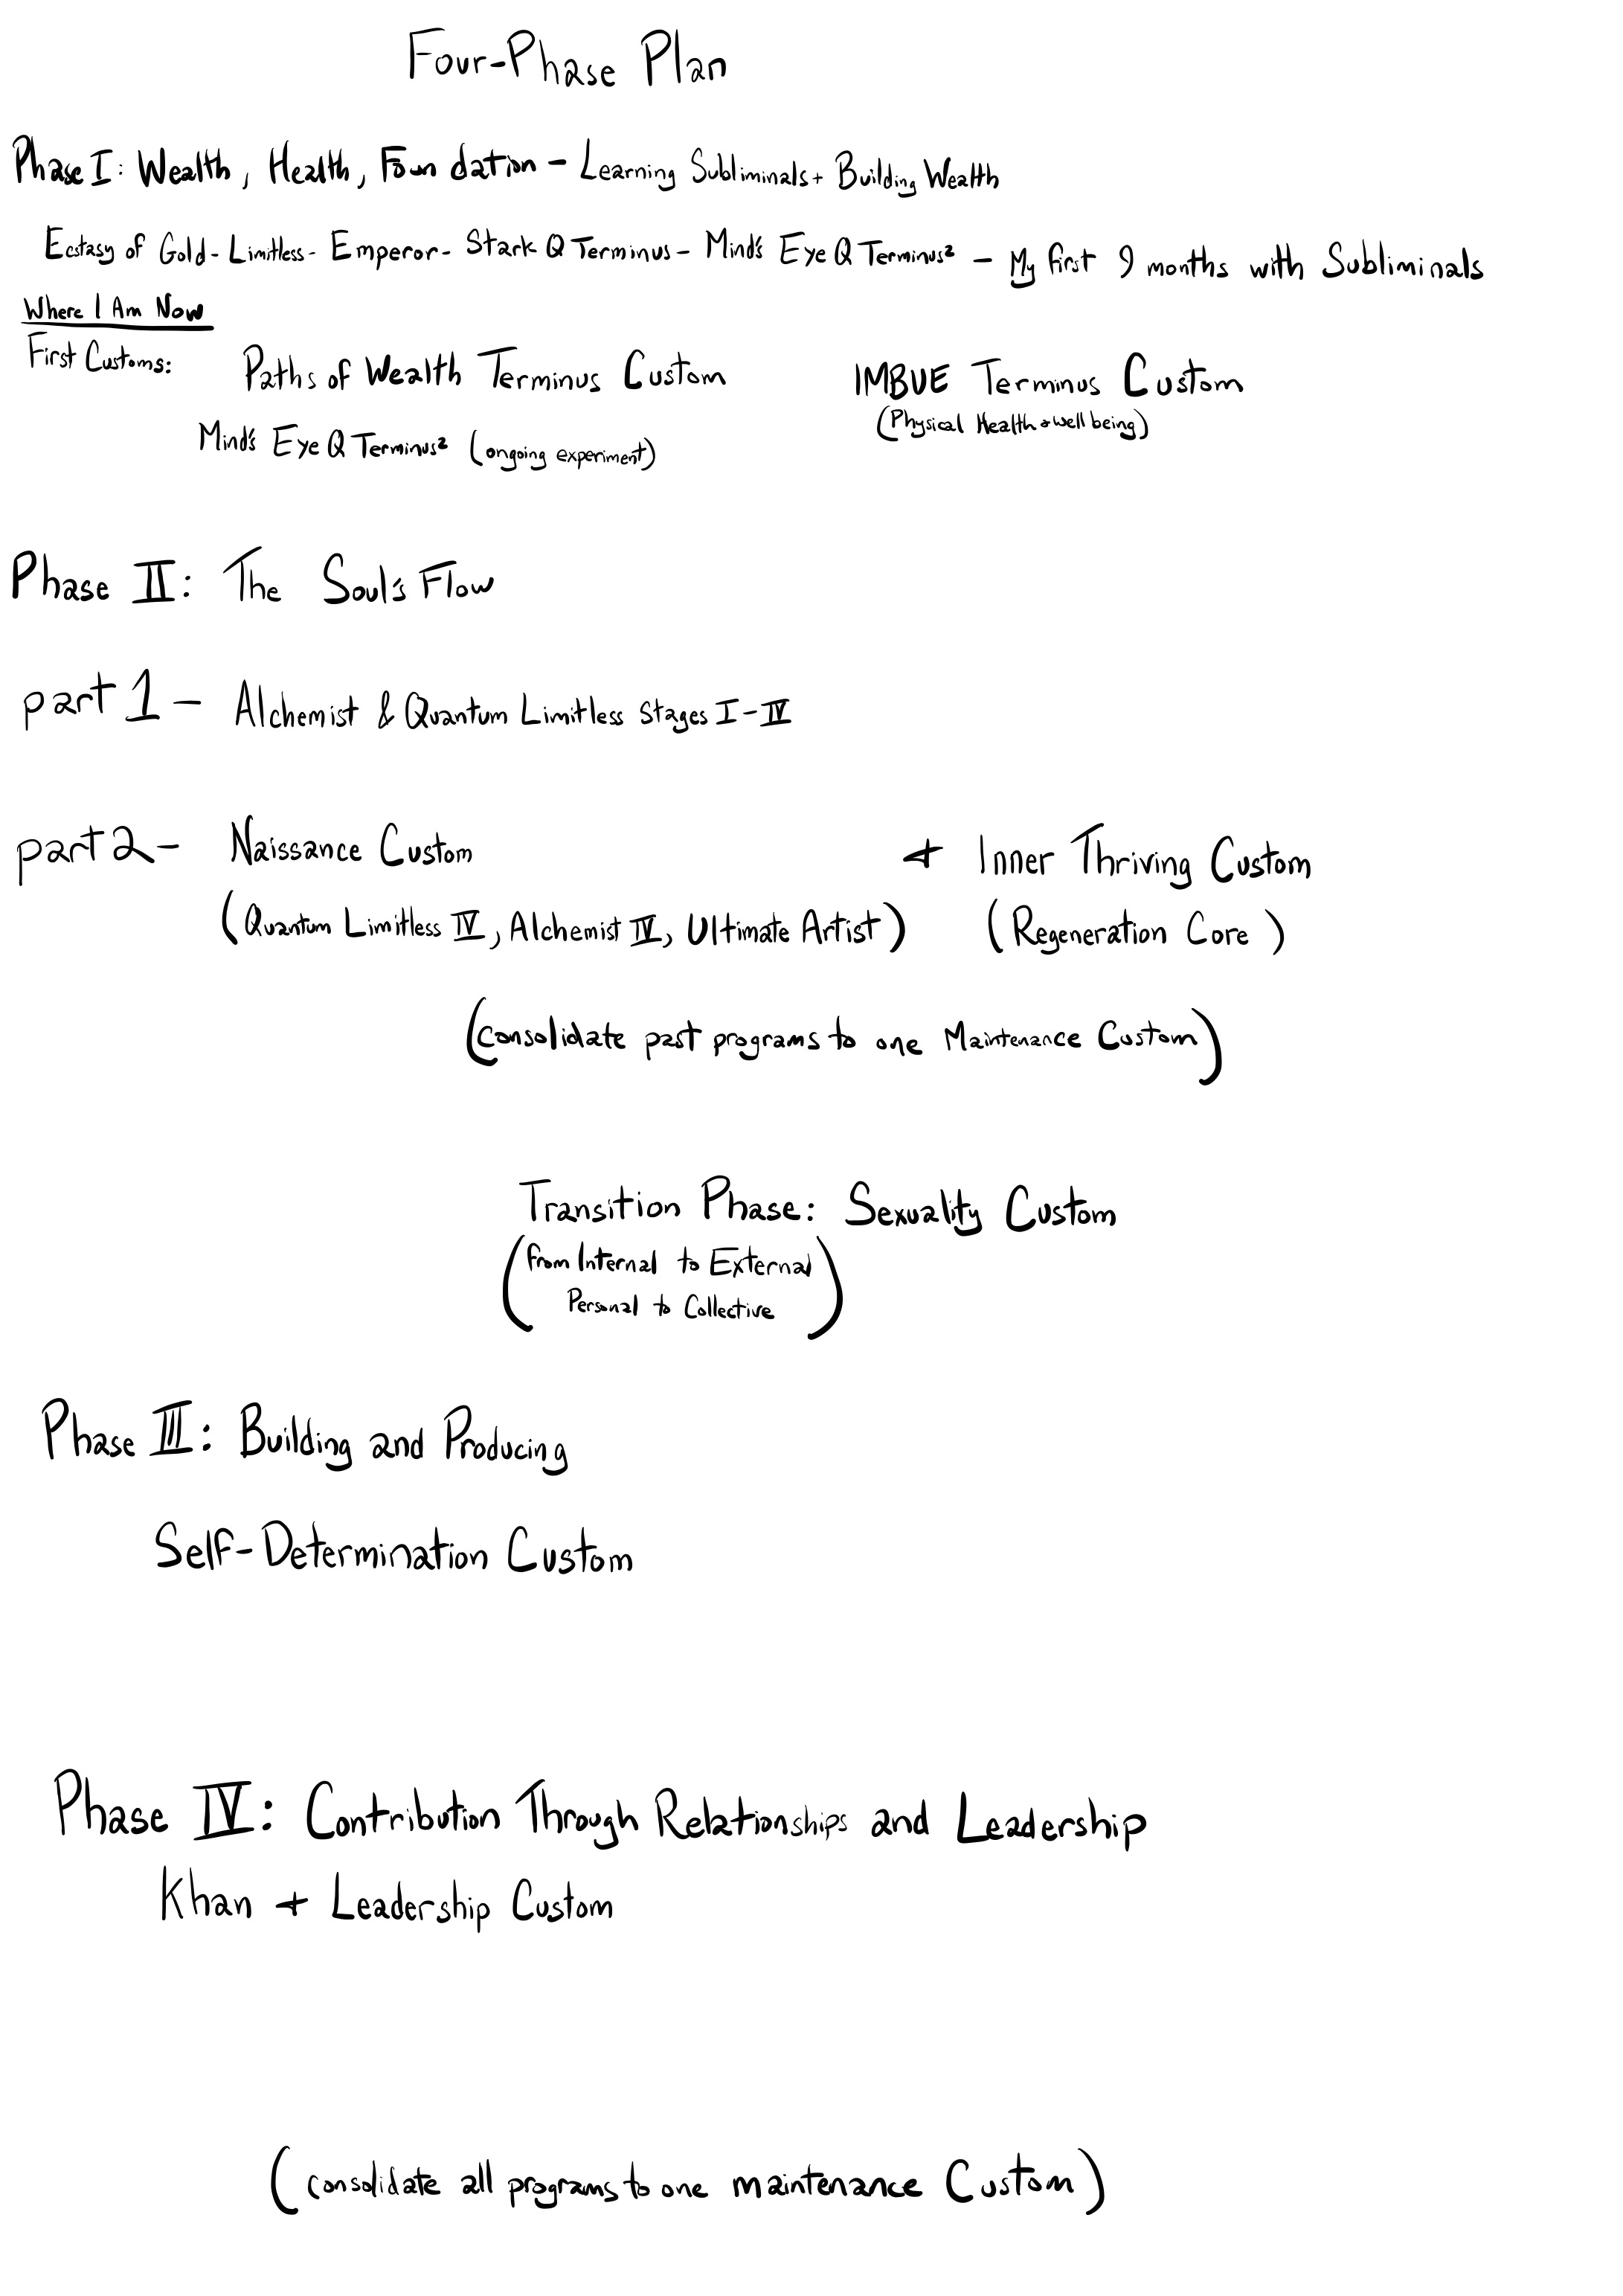 Four-Phase Plan
Phase I: Wealth, Health, Foundation - Learning Subliminals + Building Wealth
Ecstasy of Gold - Limitless - Emperor - Stark Q Terminus - Mind's Eye Q Terminus² - My first 9 months with Subliminals
Where I Am Now
First Customs: Paths of Wealth Terminus Custom IMBUE Terminus Custom
(Physical Health & well being)
Mind's Eye Q Terminus² (ongoing experiment)
Phase II: The Soul's Flow
part 1 - Alchemist & Quantum Limitless Stages I-IV
part 2 - Naissance Custom + Inner Thriving Custom
(Quantum Limitless IV, Alchemist IV, Ultimate Artist) (Regeneration Core)
(consolidate past programs to one Maintenance Custom)
Transition Phase: Sexuality Custom
(from Internal to External
Personal to Collective)
Phase III: Building and Producing
Self-Determination Custom
Phase IV: Contribution Through Relationships and Leadership
Khan + Leadership Custom
(consolidate all programs to one maintenance Custom)